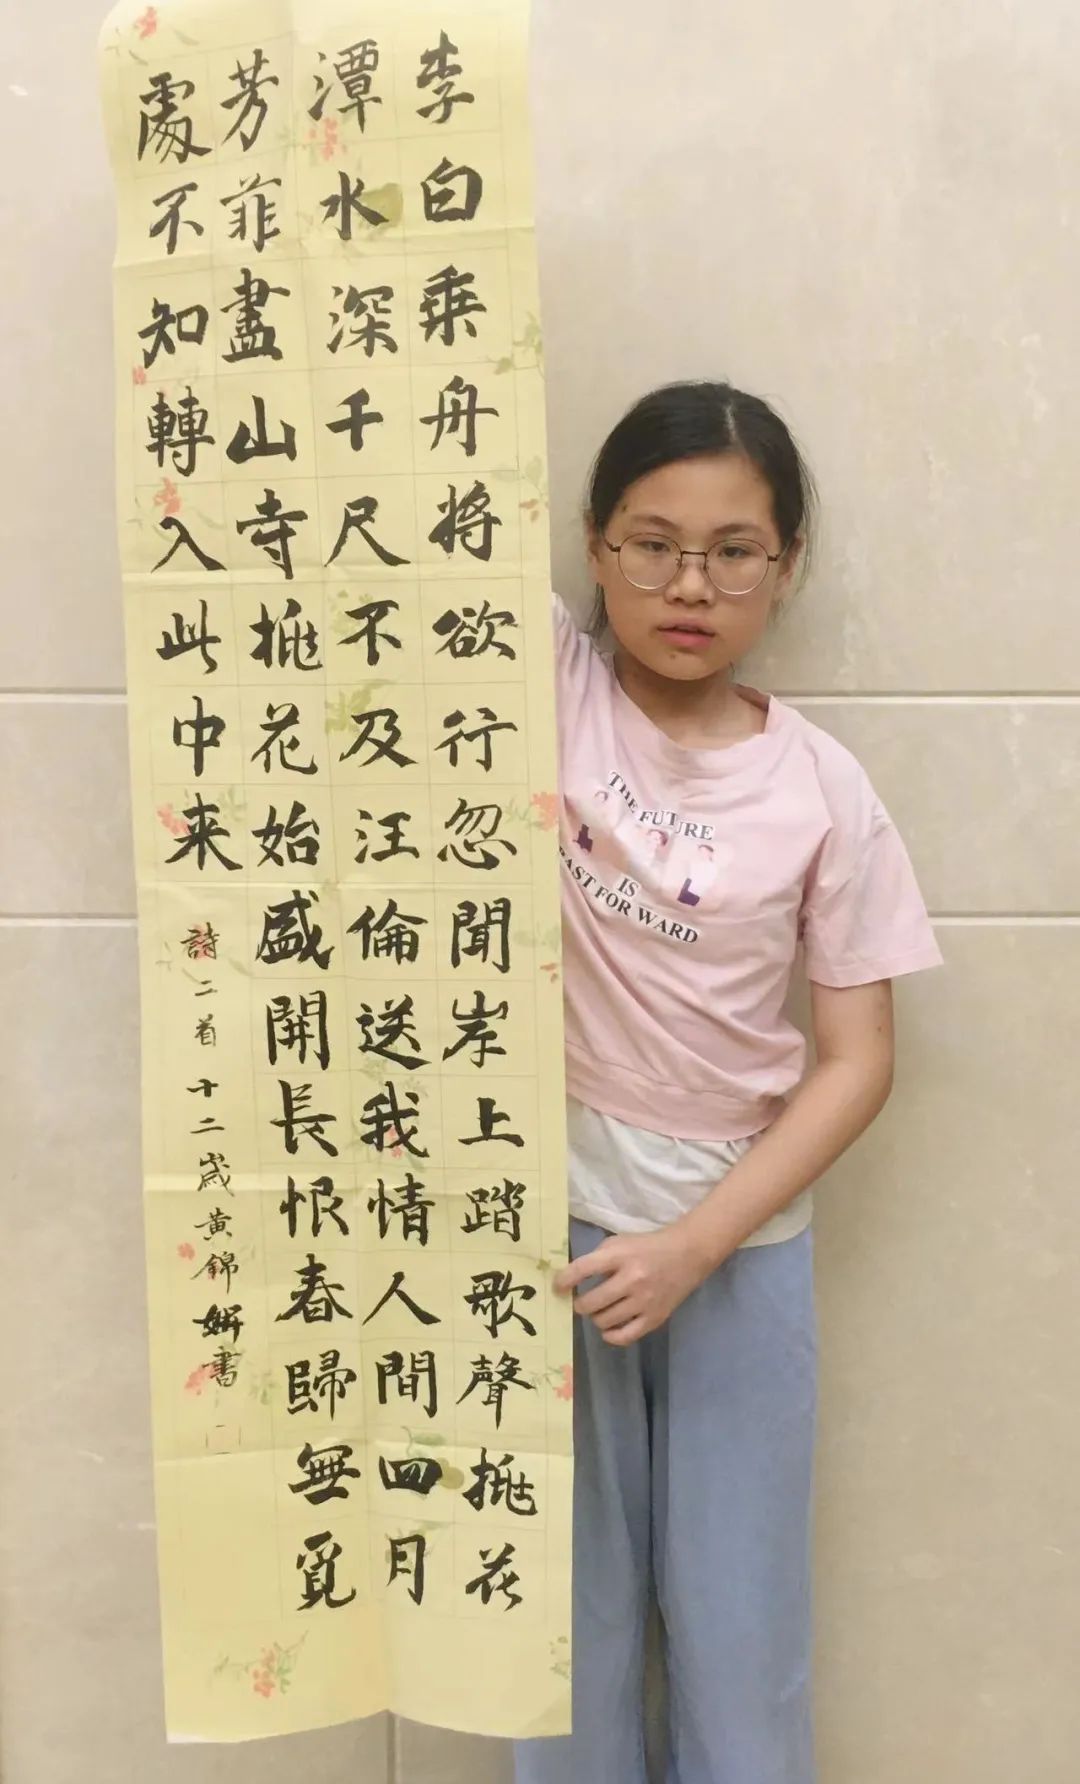 李白乘舟将欲行忽聞岸上踏歌聲桃花
潭水深千尺不及汪倫送我情人間四月
芳菲盡山寺桃花始盛開長恨春歸無覓
處不知轉入此中来
詩二首十二歲黄錦姸書
THE FUTURE
IS
FAST FOR WARD